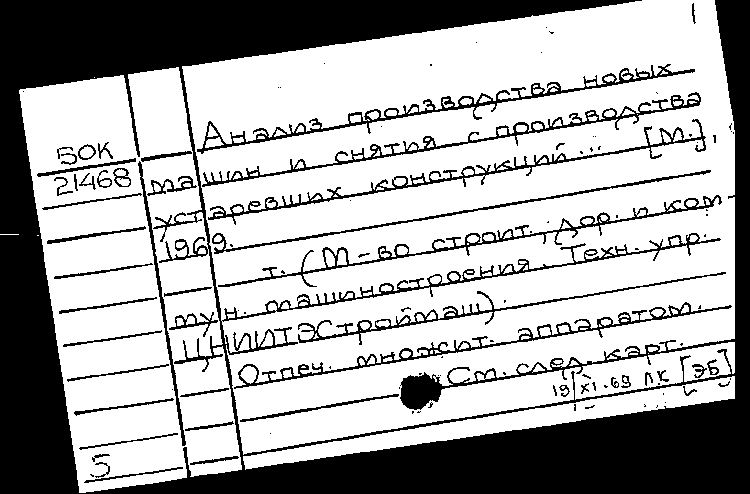 1
Анализ производства новых
БОК
21468
машин и снятия с производства
устаревших конструкций... [М.],
1969.
т. (М-во строит., дор. и ком-
мун. машиностроения. Техн. упр.
ЦНИИТЭСтроймаш).
Отпеч. множит. аппаратом.
См. след. карт.
19/XI.69 ЛК [ЭБ]
5